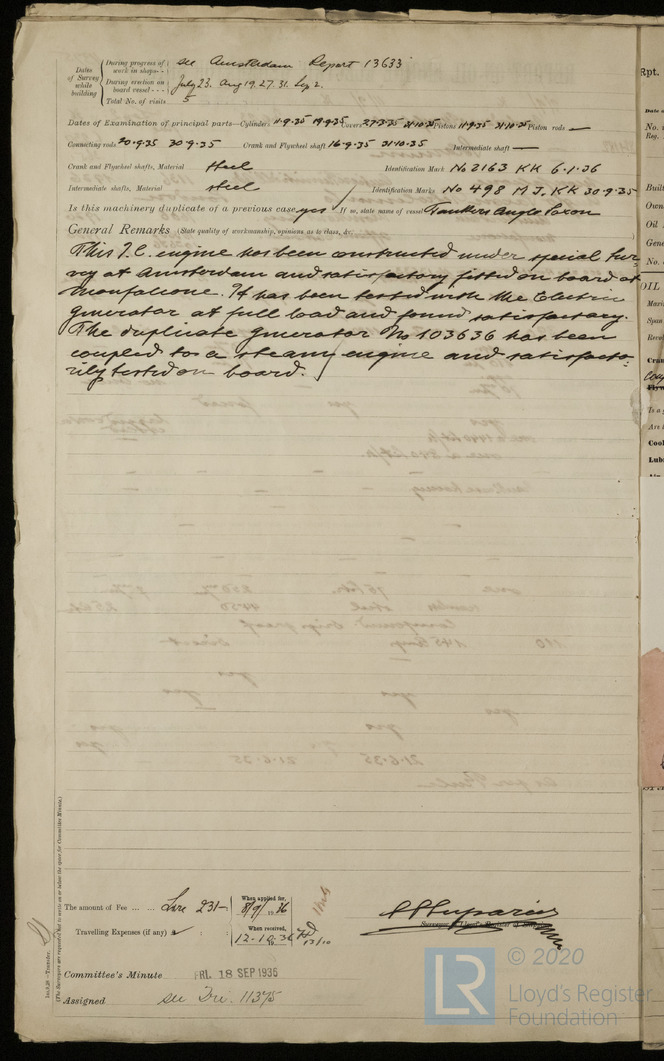 Dates of Survey while building
During progress of work in shops - - see Amsterdam Report 13633
During erection on board vessel - - - July 23. Aug 19. 27. 31. Sep 2.
Total No. of visits 5
Dates of Examination of principal parts—Cylinders 11-9-35 19-9-35 Covers 27-9-35 31-10-35 Pistons 11-9-35 31-10-35 Piston rods —
Connecting rods 20-9-35 30-9-35 Crank and Flywheel shaft 16-9-35 31-10-35 Intermediate shaft —
Crank and Flywheel shafts, Material steel Identification Mark No 2163 KK 6-1-36
Intermediate shafts, Material steel Identification Marks No 498 M J. KK 30-9-35
Is this machinery duplicate of a previous case yes If so, state name of vessel Tankers Anglo Saxon
General Remarks (State quality of workmanship, opinions as to class, &c.
This I.C. engine has been constructed under special sur
vey at Amsterdam and satisfactory fitted on board at
Monfalcone. It has been tested with the Electric
generator at full load and found satisfactory.
The duplicate generator No 103636 has been
coupled to a steam engine and satisfacto-
rily tested on board.
The amount of Fee ... ... Lire 231-: When applied for, 8/9/1936
Travelling Expenses (if any) : : When received, 12-10-36
Surveyor to Lloyd's Register of Shipping
Committee's Minute FRI. 18 SEP 1936
Assigned see Tri. 11375
(The Surveyors are requested not to write on or below the space for Committee Minute.)
© 2020
LR
Lloyd's Register
Foundation
Rpt.
No.
Reg.
Built
Own
Oil
Gene
No.
OIL
Span
Revol
Cran
Is a
Are
Cool
Lub